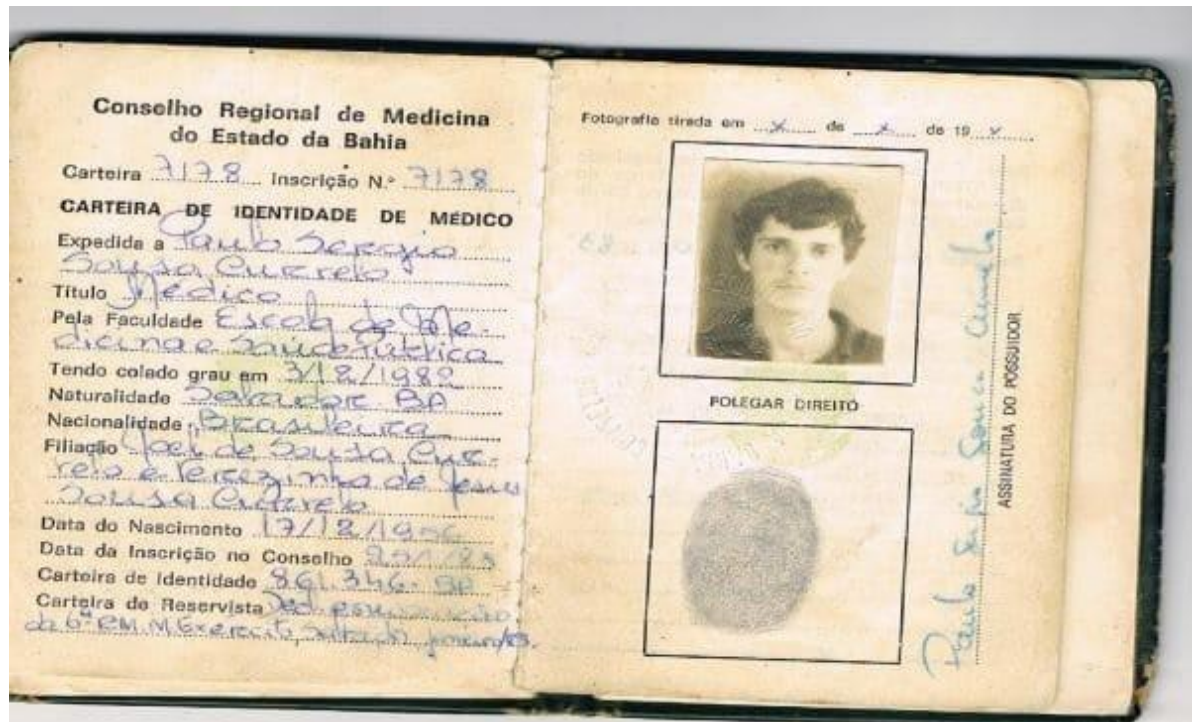 Conselho Regional de Medicina
do Estado da Bahia
Carteira 7178 Inscrição N.º 7178
CARTEIRA DE IDENTIDADE DE MÉDICO
Expedida a Paulo Sergio
Sousa Currelo
Título Médico
Pela Faculdade Escola de Me-
dicina e Saúde Pública
Tendo colado grau em 3/12/1982
Naturalidade Salvador BA
Nacionalidade Brasileira
Filiação Joel de Sousa Cur-
relo e Terezinha de Jesus
Sousa Currelo
Data do Nascimento 17/12/1956
Data da Inscrição no Conselho
Carteira de Identidade 861.346-BA
Carteira de Reservista
da 6ª RM. M Exercito, Salvador
Fotografia tirada em x de x de 19 x
POLEGAR DIREITO
ASSINATURA DO POSSUIDOR
Paulo Sergio Sousa